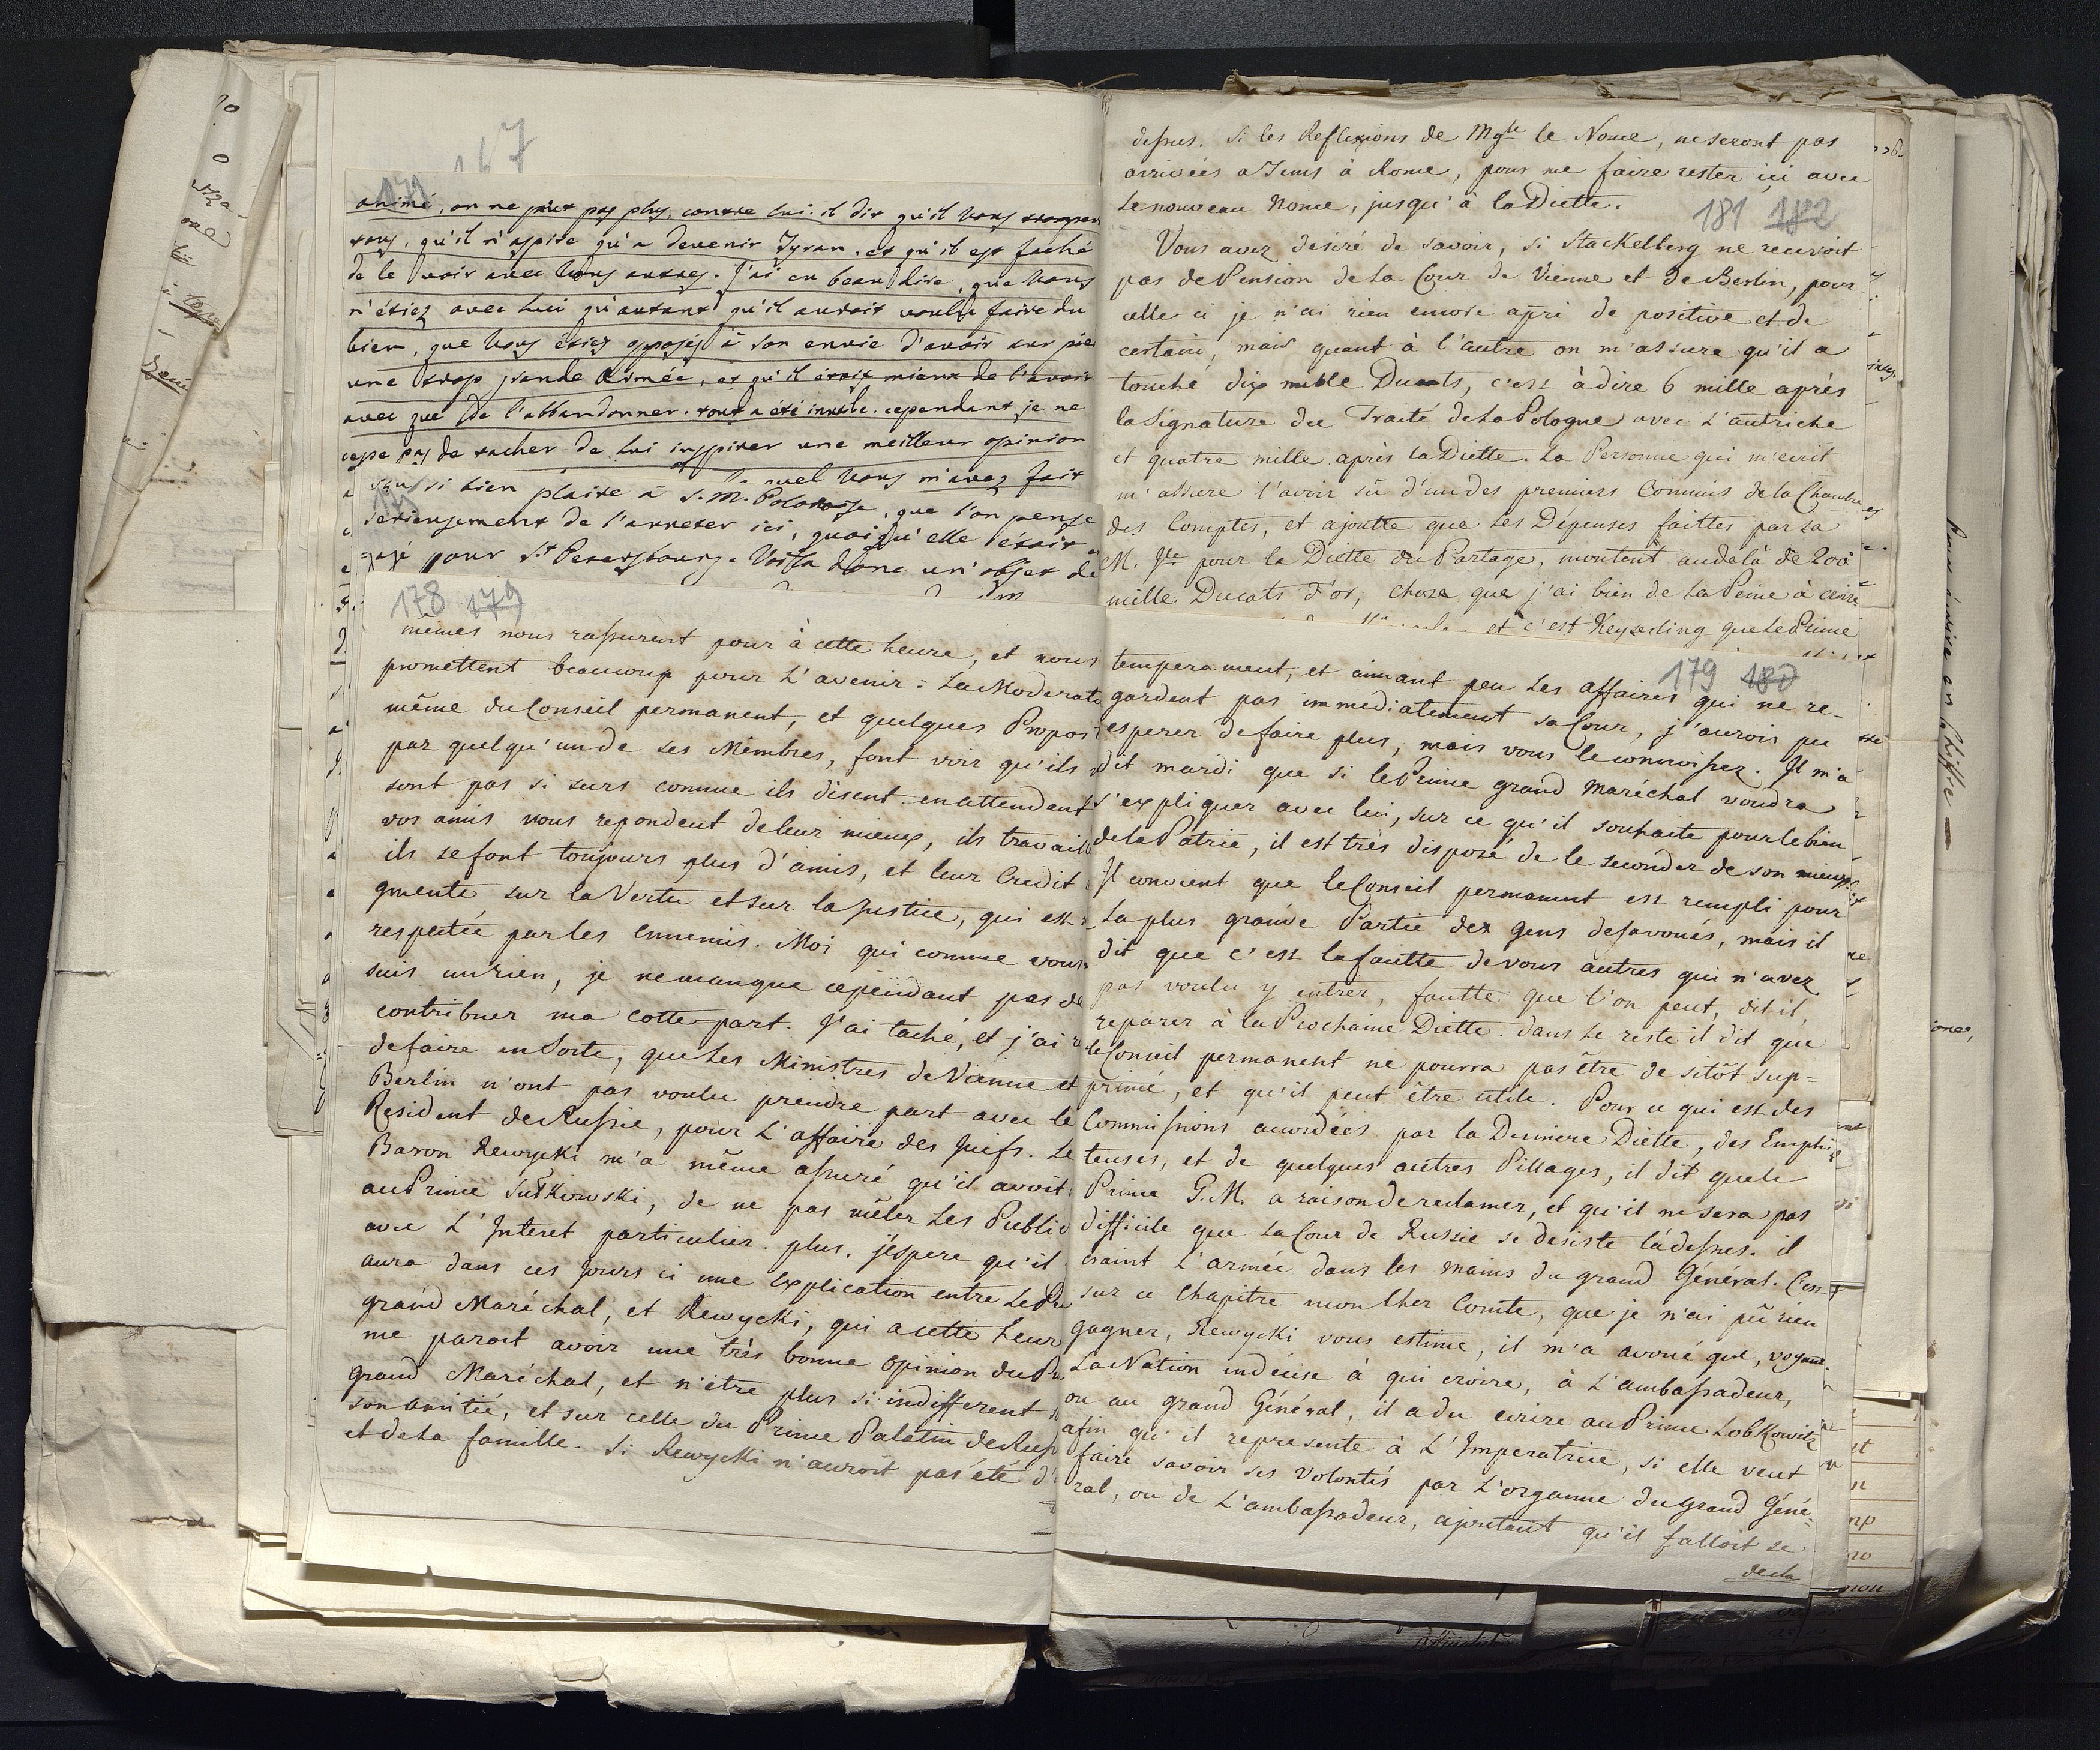 167
171
animé, on ne peut pas plus, contre lui: il dit qu'il vous trompe
tous, qu'il n'aspire qu'a devenir Tyran, et qu'il est faché
de le voir avec vous autres. J'ai eu beau dire, que vous
n'étiez avec lui qu'autant qu'il auroit voulu faire du
bien, que vous étiez opposés à son envie d'avoir sur pie
une trop grande Armée, et qu'il étoit mieux de l'avoir
avec que de l'abbandonner. tout a été inutile. cependant je ne
cesse pas de tacher de lui inspirer une meilleur opinion
quel vous m'avez fait
si bien plaire à S. M. Polonoise, que l'on pense
serieusement de l'arreter ici, quoiqu'elle étoit
gagé pour St Petersbourg. Voilla donc un'objet de
178 179
mêmes nous rassurent pour à cette heure, et nous
promettent beaucoup pour L'avenir: La Moderat
même du Conseil permanent, et quelques Propos
par quelqu'un de ses Mêmbres, font voir qu'ils
sont pas si seurs comme ils disent. en attendant
vos amis vous repondent de leur mieux, ils travail
ils se font toujours plus d'amis, et leur Credit
gmente sur la Vertu et sur la Justice, qui est
respectée par les Ennemis. Moi qui comme vous
suis un rien, je ne manque cependant pas de
contribuer ma cotte-part. J'ai taché, et j'ai
de faire en Sorte, que Les Ministres de Vienne et
Berlin n'ont pas voulu prendre part avec le
Resident de Russie, pour L'affaire des Juifs. Le
Baron Rewycki m'a même assuré qu'il avoit
au Prince Sulkowski, de ne pas mêler Les Public
avec L'Interet particulier. plus. j'éspere qu'il
aura dans ces jours ci une explication entre Le Pr
grand Maréchal, et Rewycki, qui a cette heur
me paroit avoir une très bonne opinion du Pr
grand Maréchal, et n'être plus si indifferent
son amitié, et sur celle du Prince Palatin de Rus
et de La famille. Si Rewycki n'auroit pas été d'
dessus. Si les Reflexions de Mgr le Nonce, ne seront pas
arrivées a Tems à Rome, pour me faire rester ici avec
Le nouveau Nonce, jusqu'à la Diette.
181 182
Vous avez desiré de savoir, si Stackelberg ne recevoit
pas de Pension de La Cour de Vienne et de Berlin, pour
celle ci je n'ai rien encore apri de positive et de
certain, mais quant à l'autre on m'assure qu'il a
touché dix mille Ducats, c'est à dire 6 mille après
la Signature du Traité de La Pologne avec L'autriche
et quatre mille après la Diette. La Personne qui m'ecrit
m'assure l'avoir sû d'un des premiers Commis de la Chambre
des Comptes, et ajoutte que Les Dépenses faittes par Sa
M. pour la Diette du Partage, montent au delà de 200
mille Ducats d'or, chose que j'ai bien de La Peine à croire
et c'est Keyserling que Le Prince
179 180
temperament, et aimant peu Les affaires qui ne re-
gardent pas immediatement sa Cour, j'aurois pu
esperer de faire plus, mais vous le connoissez. Il m'a
dit mardi que si le Prince grand Maréchal voudra
s'expliquer avec lui, sur ce qu'il souhaite pour le bien
de la Patrie, il est très disposé de le seconder de son mieux.
Il convient que le Conseil permanent est rempli pour
La plus grande Partie des gens desavoués, mais il
dit que c'est la fautte de vous autres qui n'avez
pas voulu y entrer, fautte que l'on peut, dit il,
reparer à la Prochaine Diette. dans Le reste il dit que
le Conseil permanent ne pourra pas être de sitôt sup=
primé, et qu'il peut être utile. Pour ce qui est des
Commissions accordées par la Derniere Diette, des Emphi
teuses, et de quelques autres Pillages, il dit que le
Prince G. M. a raison de reclamer, et qu'il ne sera pas
difficile que La Cour de Russie se desiste là dessus. il
craint L'armée dans les mains du grand Général. C'est
sur ce Chapitre mon Cher Comte, que je n'ai pû rien
gagner, Rewycki vous estime, il m'a avoué que, voyant
La Nation indécise à qui croire, à L'ambassadeur,
ou au grand Général, il a du ecrire au Prince Lobkowitz
afin qu'il represente à L'Imperatrice, si elle veut
faire savoir ses Volontés par L'organne du grand Géné=
ral, ou de L'ambassadeur, ajoutant qu'il falloit se
decla